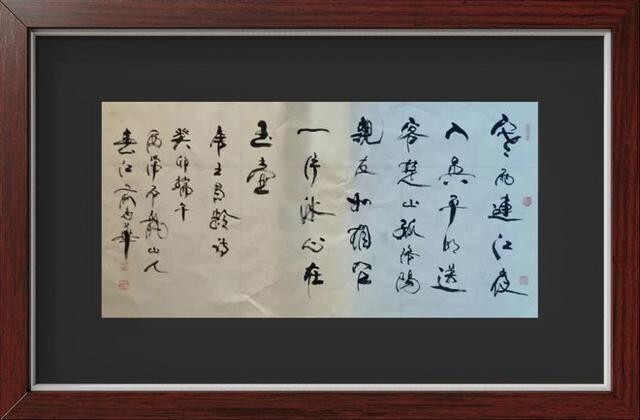 寒雨連江夜
入吳平明送
客楚山孤洛陽
親友如相問
一片冰心在
玉壺
唐王昌齡詩
癸卯端午
山人
春江華